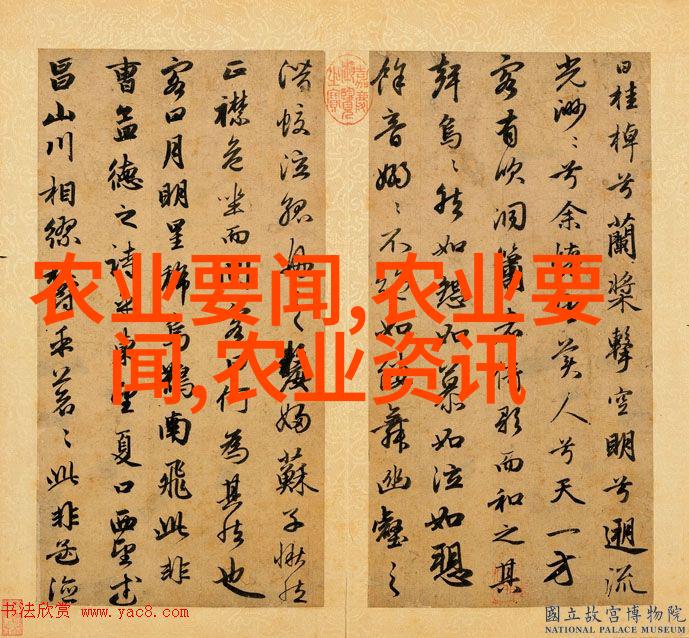 曰桂棹兮蘭槳擊空明兮遡流
光渺〻兮余懷望美人兮天一方
客有吹洞簫者倚歌而和之其
聲烏〻然如怨如慕如泣如愬
餘音嫋〻不絕如縷舞幽壑之
潛蛟泣孤舟之嫠婦蘇子愀然
正襟危坐而問客曰何為其然也
客曰月明星稀烏鵲南飛此非
曹孟德之詩乎東望夏口西望武
昌山川相繆鬱乎蒼〻此非孟德
嘉慶御覽之寶
农业要闻,农业要
闻,农业资讯
书法欣赏 www.yac8.com
國立故宮博物院
NATIONAL PALACE MUSEUM